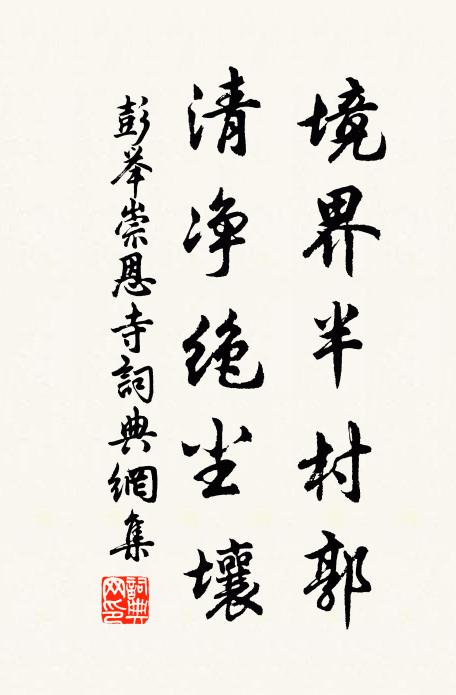 境界半村郭
清净絶尘壤
彭举崇恩寺詞典網集
詞典网印